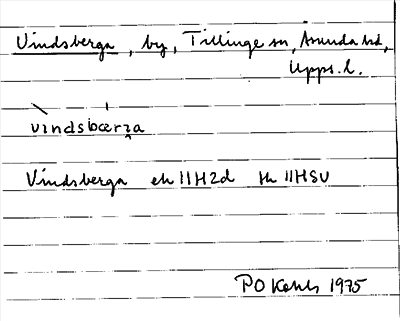 Vindsberga, by, Tillinge sn, Åsunda hd,
Upps. l.
vindsbærza
Vindsberga ek 11H2d tk 11HSV
PO 1975